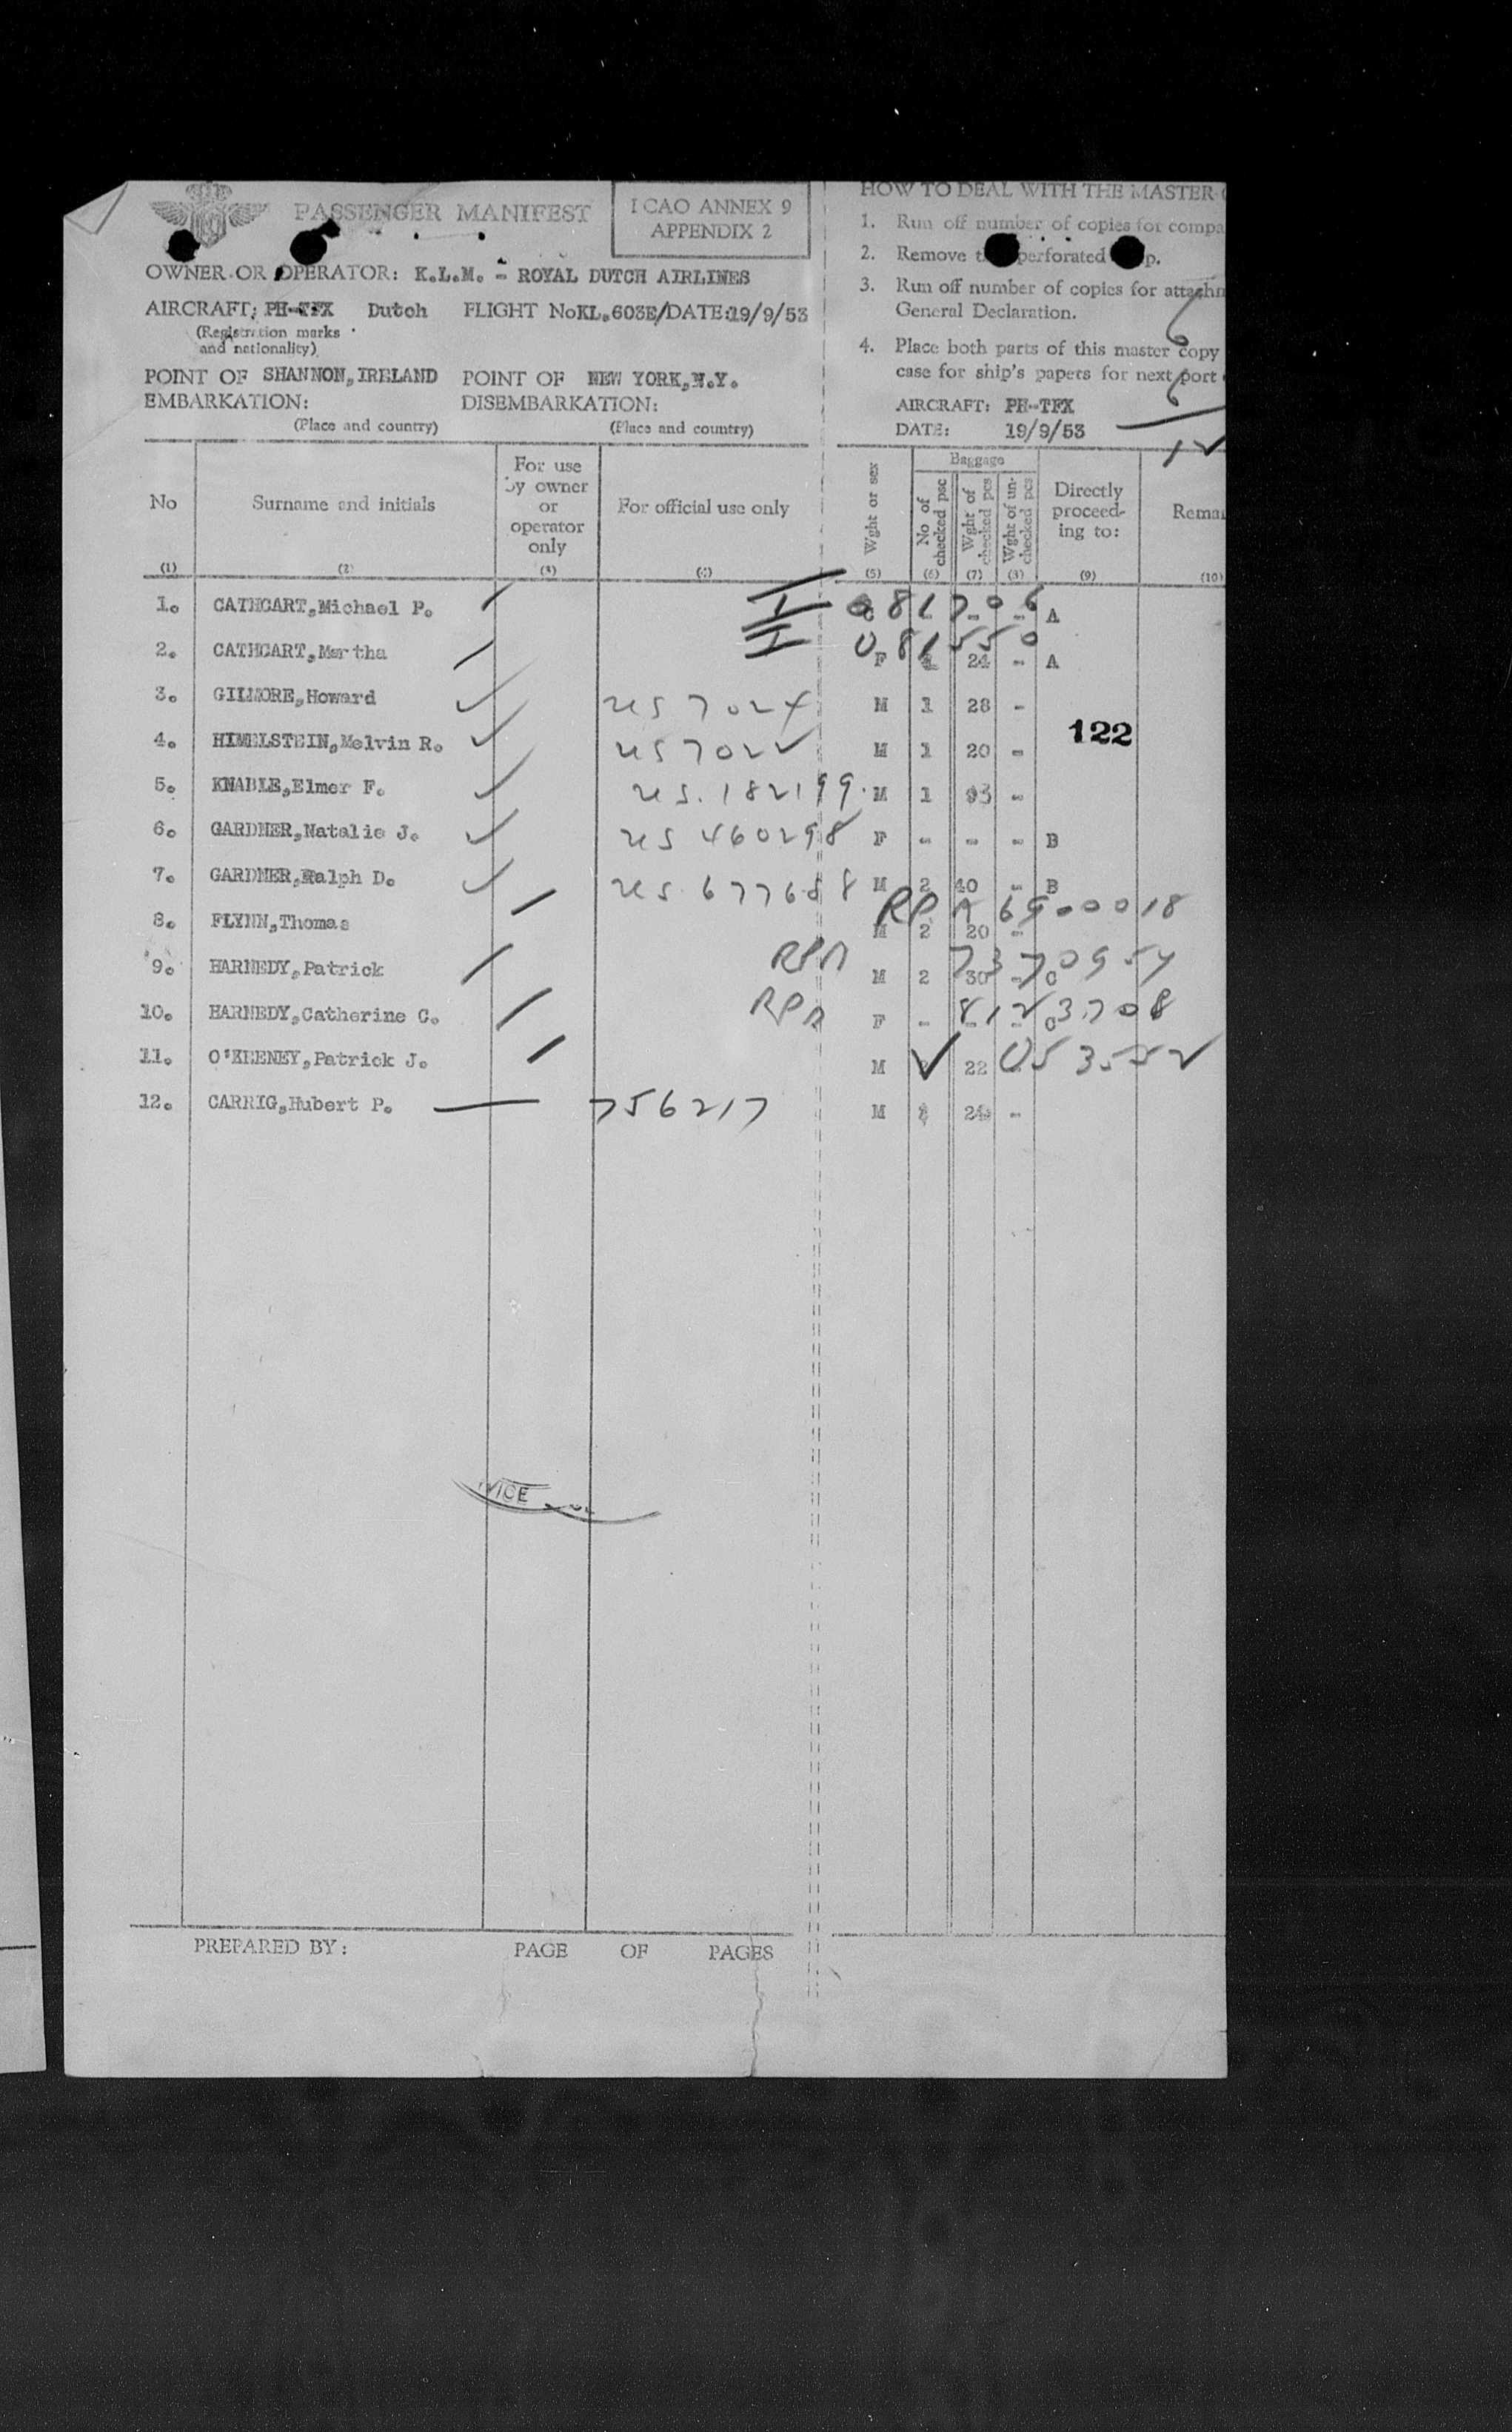 PASSENGER MANIFEST
I CAO ANNEX 9
APPENDIX 2
OWNER OR OPERATOR: K.L.M. - ROYAL DUTCH AIRLINES
AIRCRAFT: PH-TFX Dutch FLIGHT No KL.603E/DATE:19/9/53
(Registration marks
and nationality)
POINT OF SHANNON, IRELAND POINT OF NEW YORK, N.Y.
EMBARKATION: DISEMBARKATION:
(Place and country) (Place and country)
HOW TO DEAL WITH THE MASTER
1. Run off number of copies for compa
2. Remove perforated
3. Run off number of copies for attachm
General Declaration.
4. Place both parts of this master copy
case for ship's papers for next port
AIRCRAFT: PH-TFX
DATE: 19/9/53
6
6
12
No Surname and initials For use by owner or operator only For official use only Wght or sex Baggage No of checked psc Wght of checked pcs Wght of un-checked pcs Directly proceed-ing to: Remar
(1) (2) (3) (4) (5) (6) (7) (8) (9) (10)
1. CATHCART, Michael P. I 081706 C - - - A
2. CATHCART, Martha I 081550 F 24 - A
3. GILMORE, Howard M 1 28 -
122
4. HIMELSTEIN, Melvin R. M 1 20 -
5. KNABLE, Elmer F. 182199 M 1 93 -
6. GARDNER, Natalie J. 460298 F - - - B
7. GARDNER, Ralph D. 677658 M 2 40 - B
8. FLYNN, Thomas M 2 20 - RPA
9. HARNEDY, Patrick RPA M 2 30 - C 7370954
10. HARNEDY, Catherine C. RPA F - - - C 8123708
11. O'KEENEY, Patrick J. M 2 22 - 053552
12. CARRIG, Hubert P. 756217 M 24 -
PREPARED BY: PAGE OF PAGES